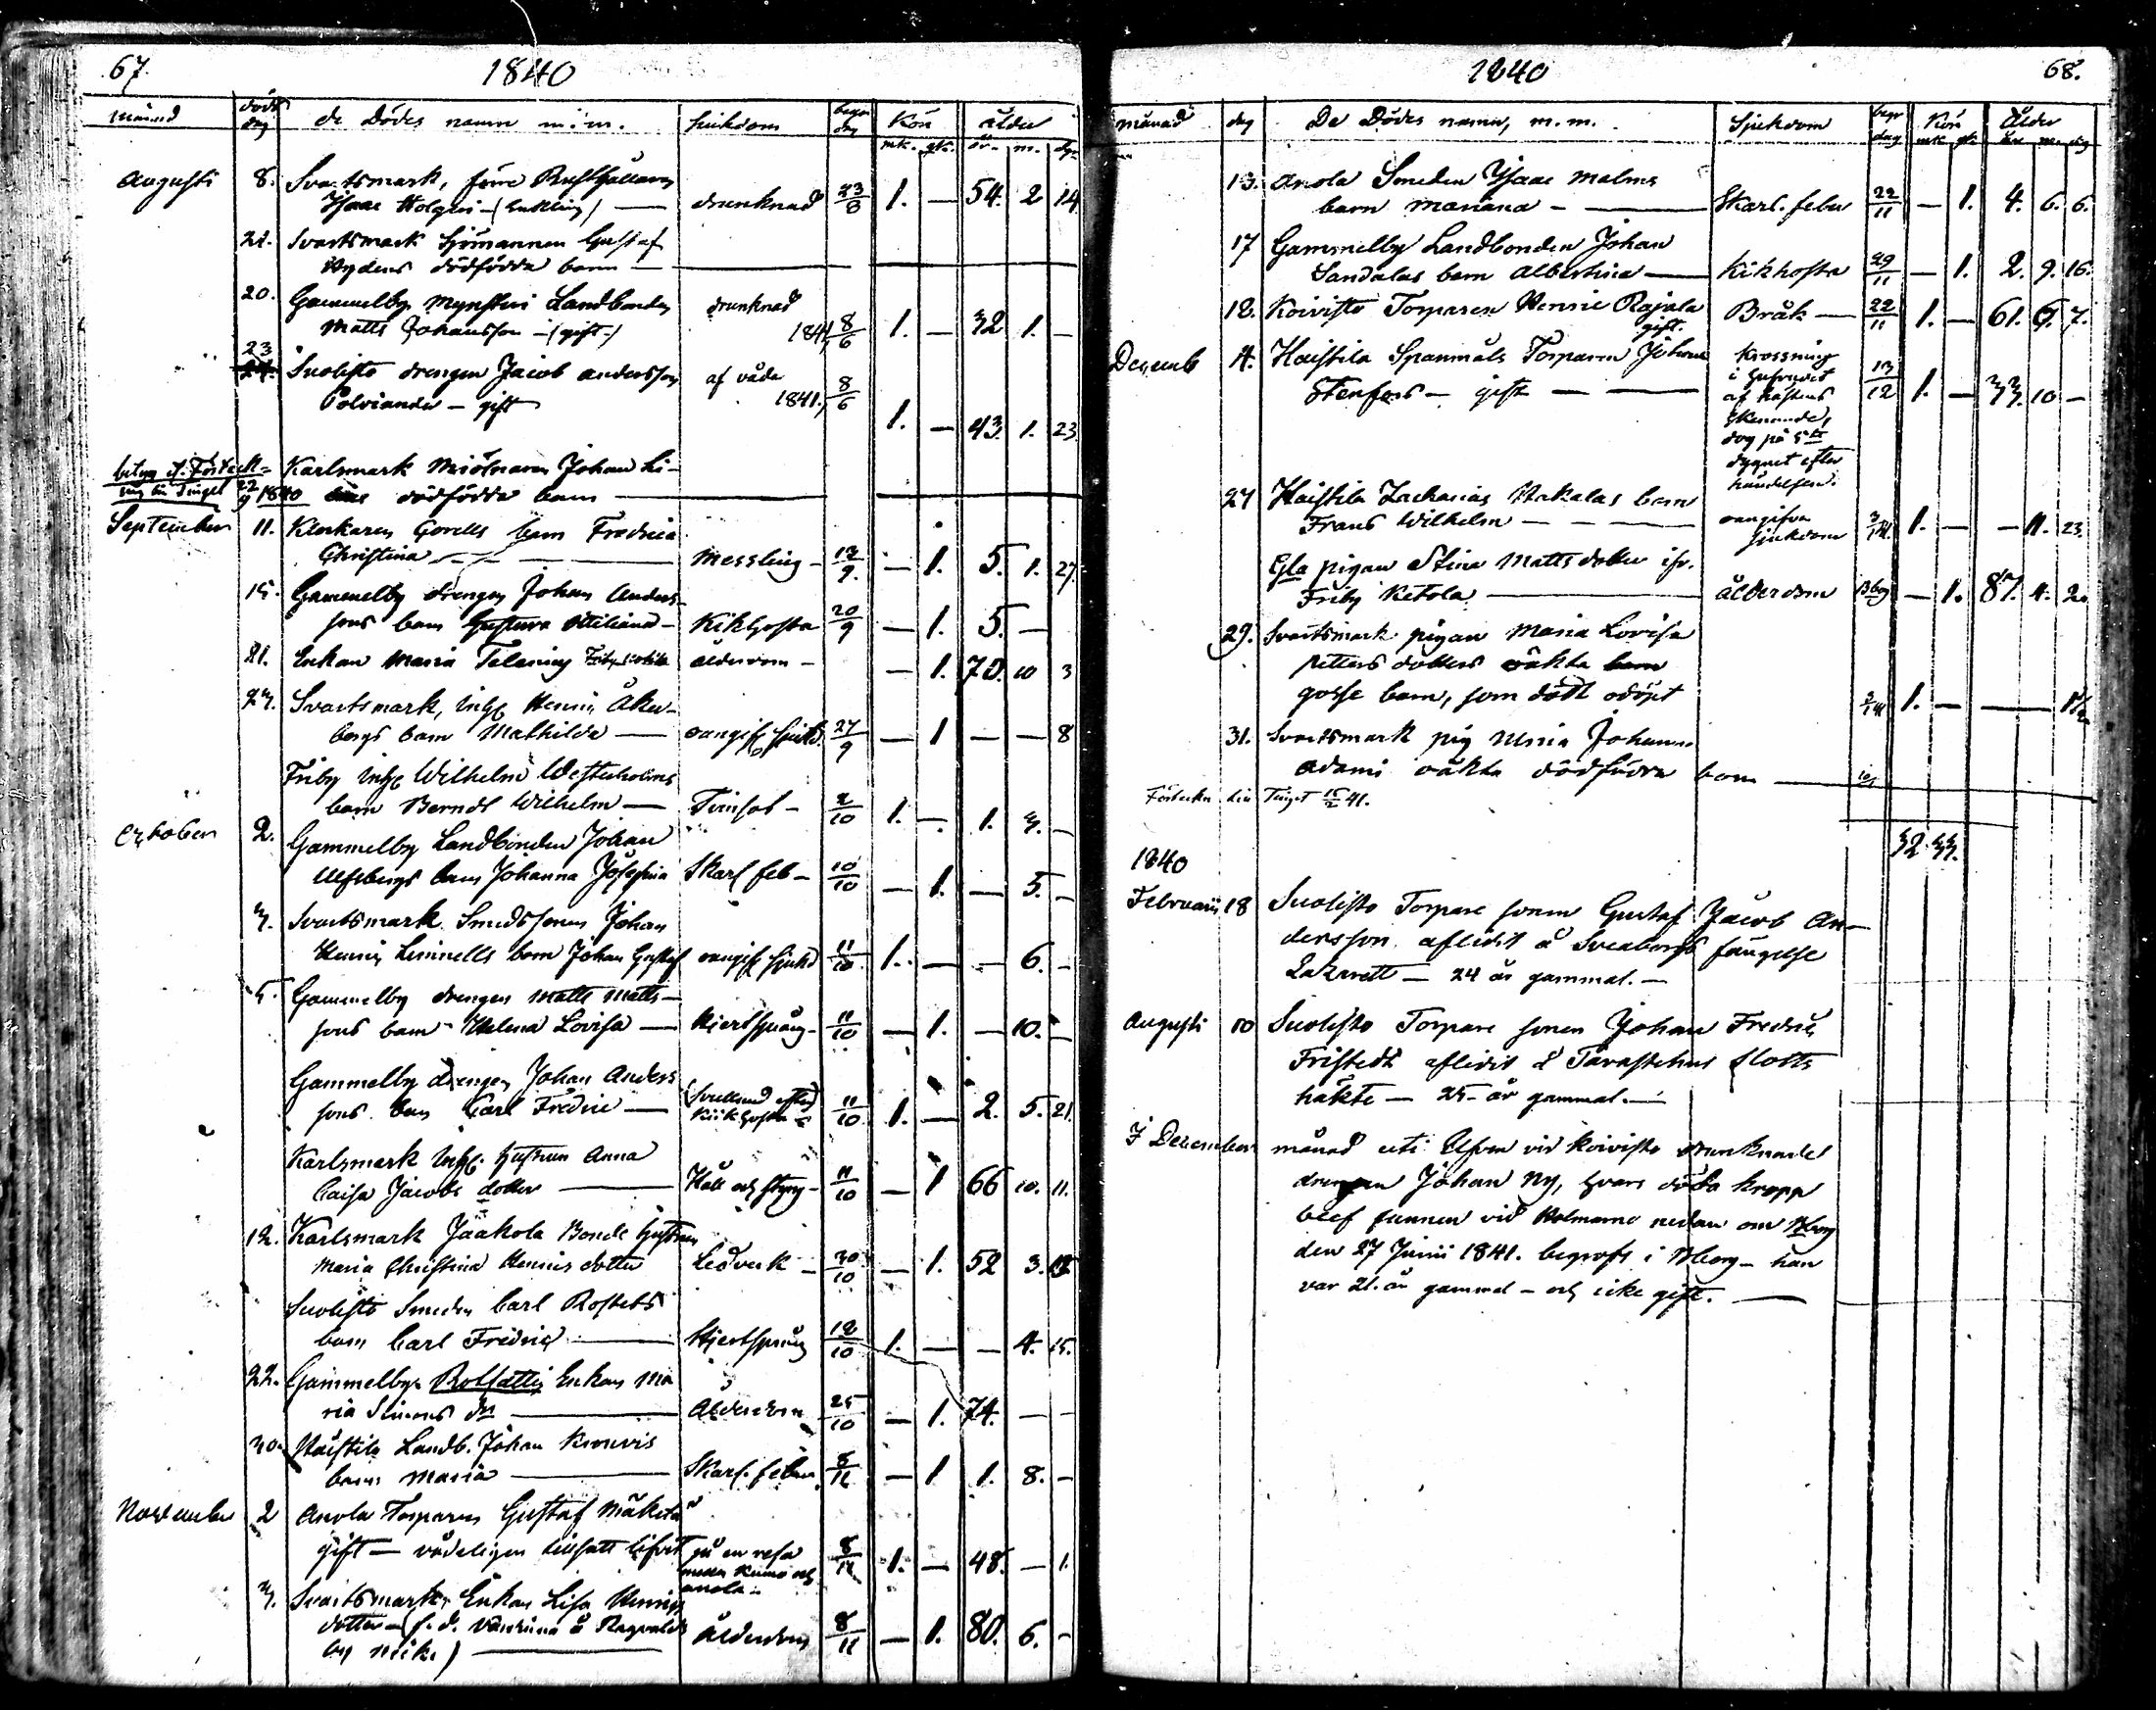 67. 1840
månad döds dag de Dödes namn m: m. sjukdom begr dag Kön ålder
mk. qk. år. m. dg.
Augusti 8. Svartsmark, förre Rusthållaren
Isaac Holgers - (Enkling) — drunknad 23/8 1. — 54. 2 14
21. Svartsmark Sjömannen Gustaf
Nydens dödfödda barn —
20. Gammelby Landbonden drunknad
Matts Johansson - (gift-) 1841, 8/6 1. — 32 1. —
23 Suolisto drengen Jacob Andersson af våda
Polviander — gift 1841, 8/6
1. — 43. 1. 23.
Karlsmark Johan Li-
22/9 1840 dödfödda barn —
September 11. Klockaren Gorells barn Fredrica
Christina — Messling - 13/9. — 1. 5. 1. 27.
15. Gammelby drengen Johan Anders-
sons barn Gustava - Kikhosta 20/9 — 1. 5. —
21. Enkan Maria Friby ålderdom - — 1. 70. 10 3
23. Svartsmark, Inh. Henric Åker-
bergs barn Mathilda — oangif. sjukd. 27/9 — 1 — — 8
Friby Inh. Wilhelm Westerholms
barn Berndt Wilhelm — Tvinsot - 2/10 1. — 1. 3. —
October 2. Gammelby Landbonden Johan
Ulfsbergs barn Johanna Josephina Skarl feb - 10/10 — 1. — 5. —
3. Svartsmark Smedssonen Johan
Henric barn Johan Gustaf oangif sjukd 11/10 1. — — 6. -
5. Gammelby drengen Matts Matts-
sons barn Helena Lovisa — Hjertsprång - 11/10 — 1. — 10. —
Gammelby drengen Johan Anders
sons barn Carl Fredric — (Svullnad efter)
Kikhosta 11/10 1. — 2. 5. 21.
Karlsmark Inh. hustrun Anna
Caisa Jacobs dotter — Håll och styng - 11/10 — 1 66 10. 11.
12. Karlsmark Jaakola Bonde hustrun
Maria Christina Henrics dotter Ledverk - 30/10 — 1. 52 3.
Suolisto Smeden Carl Rostedts
barn Carl Fredric — Hjertsprång 18/10 1. — — 4. 15.
22. Gammelby Enkan Ma
ria Simons dr — Ålderdom 25/10 — 1. 74. — —
30. Haistila Landb. Johan
barn Maria — Skarl. feber 8/11 — 1 1. 8. —
November 2 Anola Torparen Gustaf Mäkelä
gift — vådeligen tillsatt lifvet på en resa
mellan Kumo och
anola - 8/11 1. — 48. — 1.
3. Svartsmark Enkan Lisa Henrics
dotter — (f. d. å Ragvalds
by ) — Ålderdom 8/11 — 1. 80. 6. -
1840 68.
månad dag De Dödes namn, m. m. Sjukdom begr dag Kön Ålder
mk qk. år m. dg
13. Anola Smeden Isaac Malms
barn Mariana — Skarl. feber 22/11 — 1. 4. 6. 6.
17 Gammelby Landbonden Johan
Sandalas barn Albertina — Kikhosta 29/11 — 1. 2. 9. 16.
18. Koivisto Torparen Henric Rajala
gift. Bråk — 22/11 1. — 61. 6. 7.
Decemb 4. Haistila Spanmåls Torparen Johan
Stenfors — gift — Krossning
i hufvudet
af hästens
skenande,
dog på 5te
dygnet efter
händelsen. 13/12 1. — 33. 10 —
27 Haistila Zacharias Hakalas barn
Frans Wilhelm — oangifven
sjukdom 3/1 41. 1. — — 11. 23.
Gla pigan Stina Matts dotter ifr.
Friby Ketola — ålderdom Bbg — 1. 87. 4. 2.
29. Svartsmark pigan Maria Lovisa
Petters dotters oäkta
gosse barn, som dödt odöpt
3/1 41 1. — — 1 1/2
31. Svartsmark pig Johanna
Adams oäkta dödfödda barn —
Förteckn. till Tinget 15/2 41.
32. 33.
1840
Februarii 18 Suolisto Torpare sonen Gustaf Jacob An-
dersson aflidit å Sveaborgs fängelse
Lazarett — 24 år gammal. —
Augusti 10 Suolisto Torpare sonen Johan Fredric
Fristedt aflidit å Tavastehus slotts
häkte — 25 år gammal. —
I December månad uti Elfven vid Koivisto drunknade
drengen Johan Ny, hvars döda kropp
blef funnen vid Holmarne nedan om Bborg
den 27 Junii 1841. begrofs i Bborg - han
var 21. år gammal - och icke gift. —